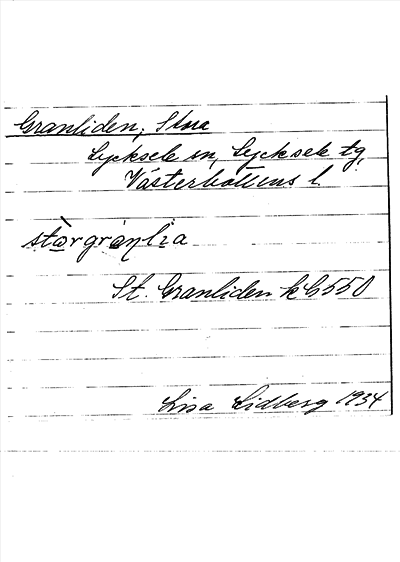 Granliden, Stora
Lycksele sn, Lycksele tg,
Västerbottens l.
stòrgranlia
St. Granliden k G550
Lisa Lidberg 1934